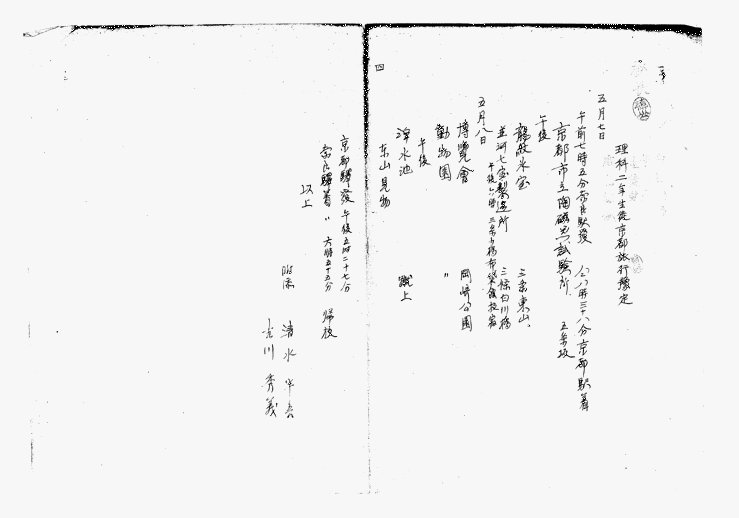 理科二年生徒京都旅行豫定
五月七日
午前七時五分奈良駅發　仝八時三十八分京都駅着
京都市立陶磁器試験所　五条坂
午後
龍紋氷室　三条東山
並河七宝製造所　三條白川橋
午後六時　三条小橋布袋館投宿
五月八日
博覧會　岡崎公園
動物園　〃
午後
浄水池　蹴上
東山見物
京都驛發　午後五時二十七分
奈良驛着　〃　六時五十五分　帰校
以上
清水
吉川秀義
四